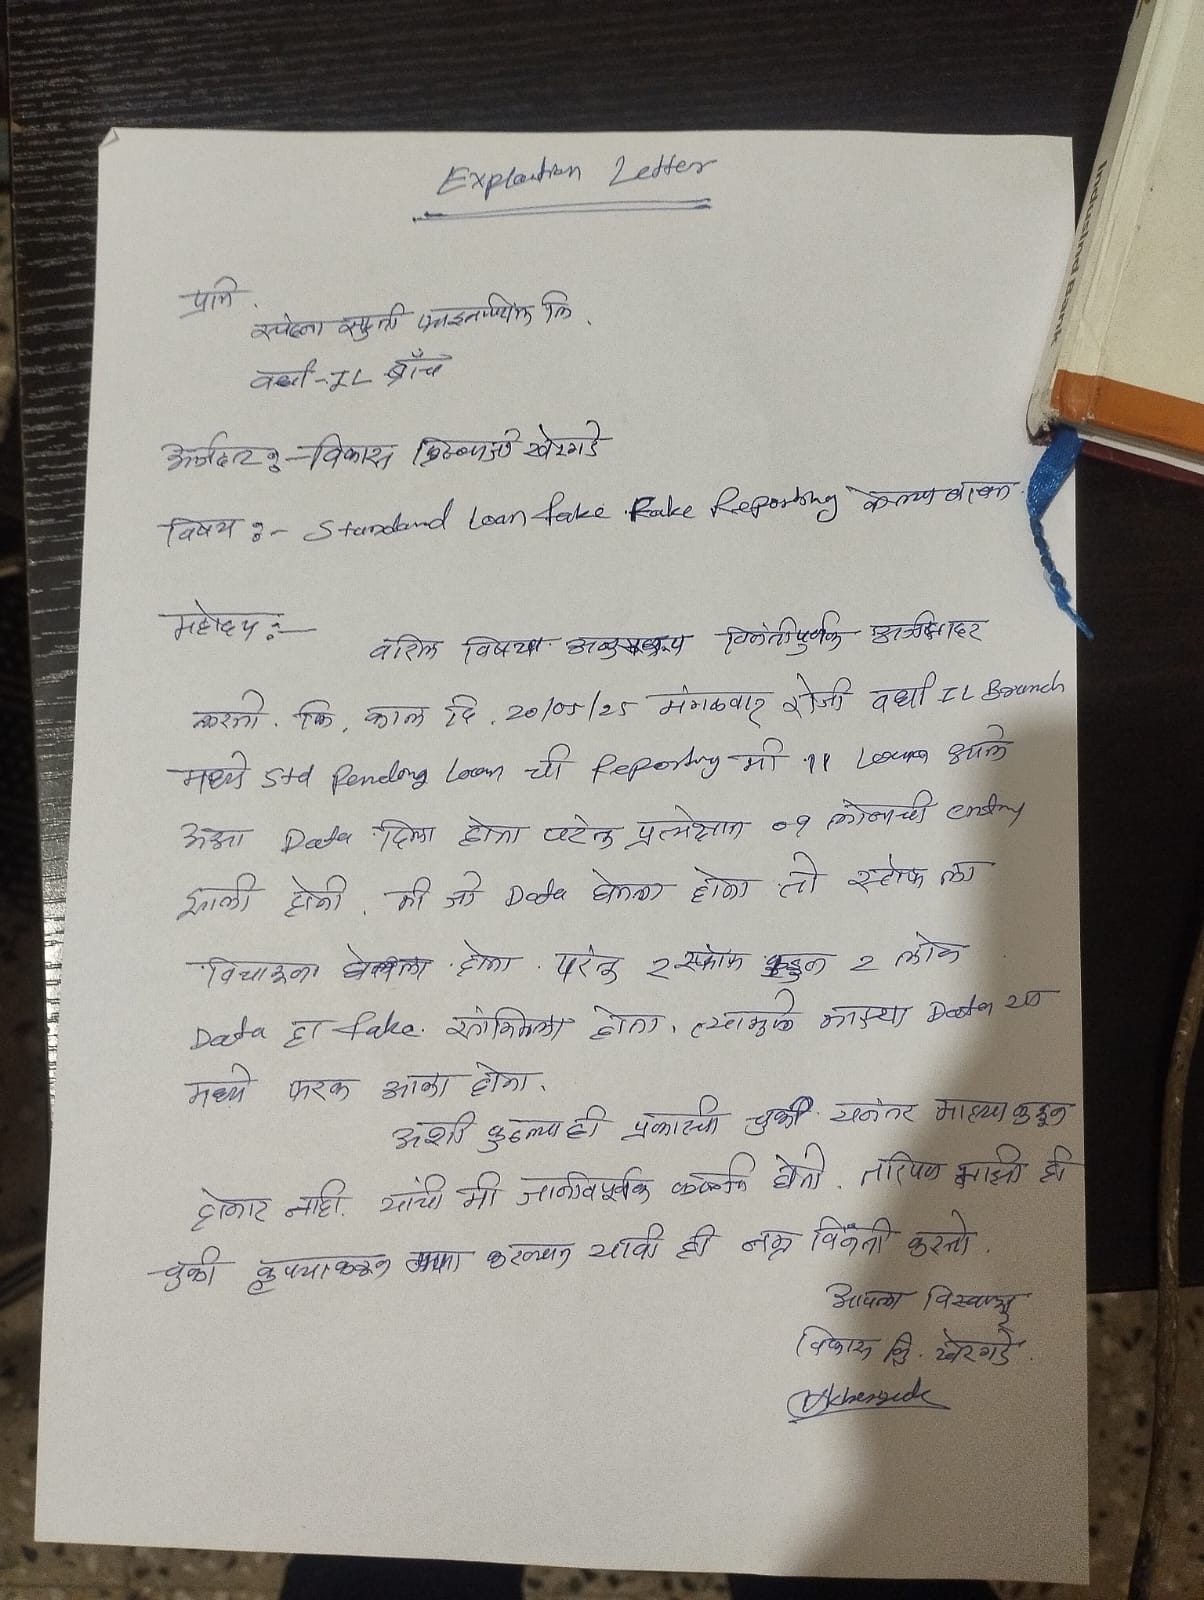 Explaution Letter
प्रति.
स्पंदना स्फुर्ती फाइनान्शियल लि.
वर्धा-IL ब्राँच
अर्जदार :- विकास खेरगडे
विषय :- Standard Loan fake Fake Reporting केल्या बाबत.
महोदय :-
वरिल विषया अनुसरून विनंतीपुर्वक अर्ज सादर
करतो. कि, काल दि. 20/05/25 मंगळवार रोजी वर्धा IL Branch
मध्ये Std Pending Loan ची Reporting मी 11 Loan आले
असा Data दिला होता परंतु प्रत्येक्षात 09 लोनची entry
झाली होती. मी जो Data घेतला होता तो स्टॉफ ला
विचारुन घेतलेला होता. परंतु 2 स्टॉफ कडुन 2 लोन
Data हा fake. सांगितला होता, त्यामुळे माझ्या Data च्या
मध्ये फरक आला होता.
अशी कुठल्याही प्रकारची चुकी यानंतर माझ्या कडुन
होणार नाही. याची मी जाणीवपूर्वक काळजी घेतो. तरिपण माझी ही
चुकी कृपया करून माफ करण्यात यावी ही नम्र विनंती करतो.
आपला विश्वासू
विकास वि. खेरगडे.
VKhergade